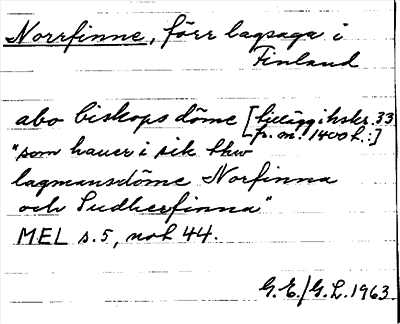 Norrfinne, förr lagsaga i
Finland
abo biskops döme [tillägg i hskr. 33
fr. m. 1400 t.:]
"som hauer i sik thw
lagmansdöme Norfinna
och Sudherfinna"
MEL s. 5, not 44.
G.E./G.L. 1963